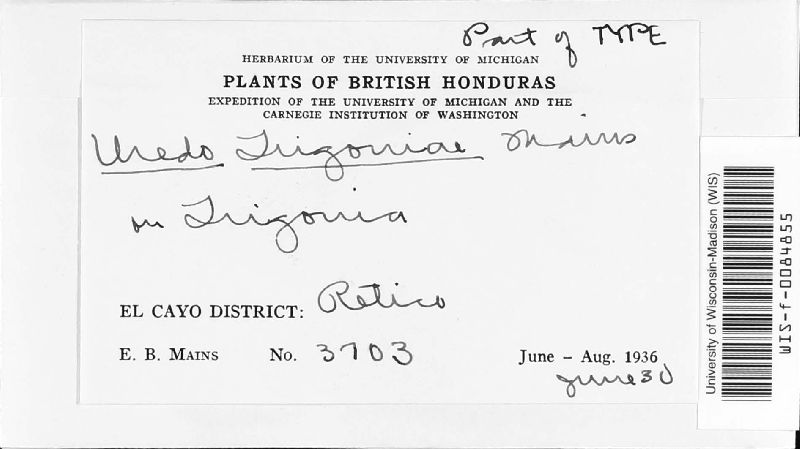 Part of TYPE
HERBARIUM OF THE UNIVERSITY OF MICHIGAN
PLANTS OF BRITISH HONDURAS
EXPEDITION OF THE UNIVERSITY OF MICHIGAN AND THE
CARNEGIE INSTITUTION OF WASHINGTON
Uredo Trigoniae Mains
on Trigonia
EL CAYO DISTRICT: Retiro
E. B. MAINS No. 3703 June – Aug. 1936
June 30
University of Wisconsin-Madison (WIS)
WIS-f-0084855